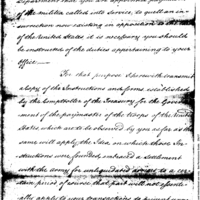 Department that you are appointed paymaster
of the militia called into Service, to quell an in-
surrection now existing in opposition to the laws
of the United States it is necessary you should
be instructed of the duties appertaining to your
Office.
For that purpose I herewith transmit
a copy of the Instructions and forms established
by the Comptroller of the Treasury, for the Govern-
ment of the paymaster of the troops of the United
States which are to be observed by you as far as the
same will apply, the Idea, on which those In-
structions were founded, embraced a settlement
with the army for unliquidated
period of course, that part will not
apply to your transactions